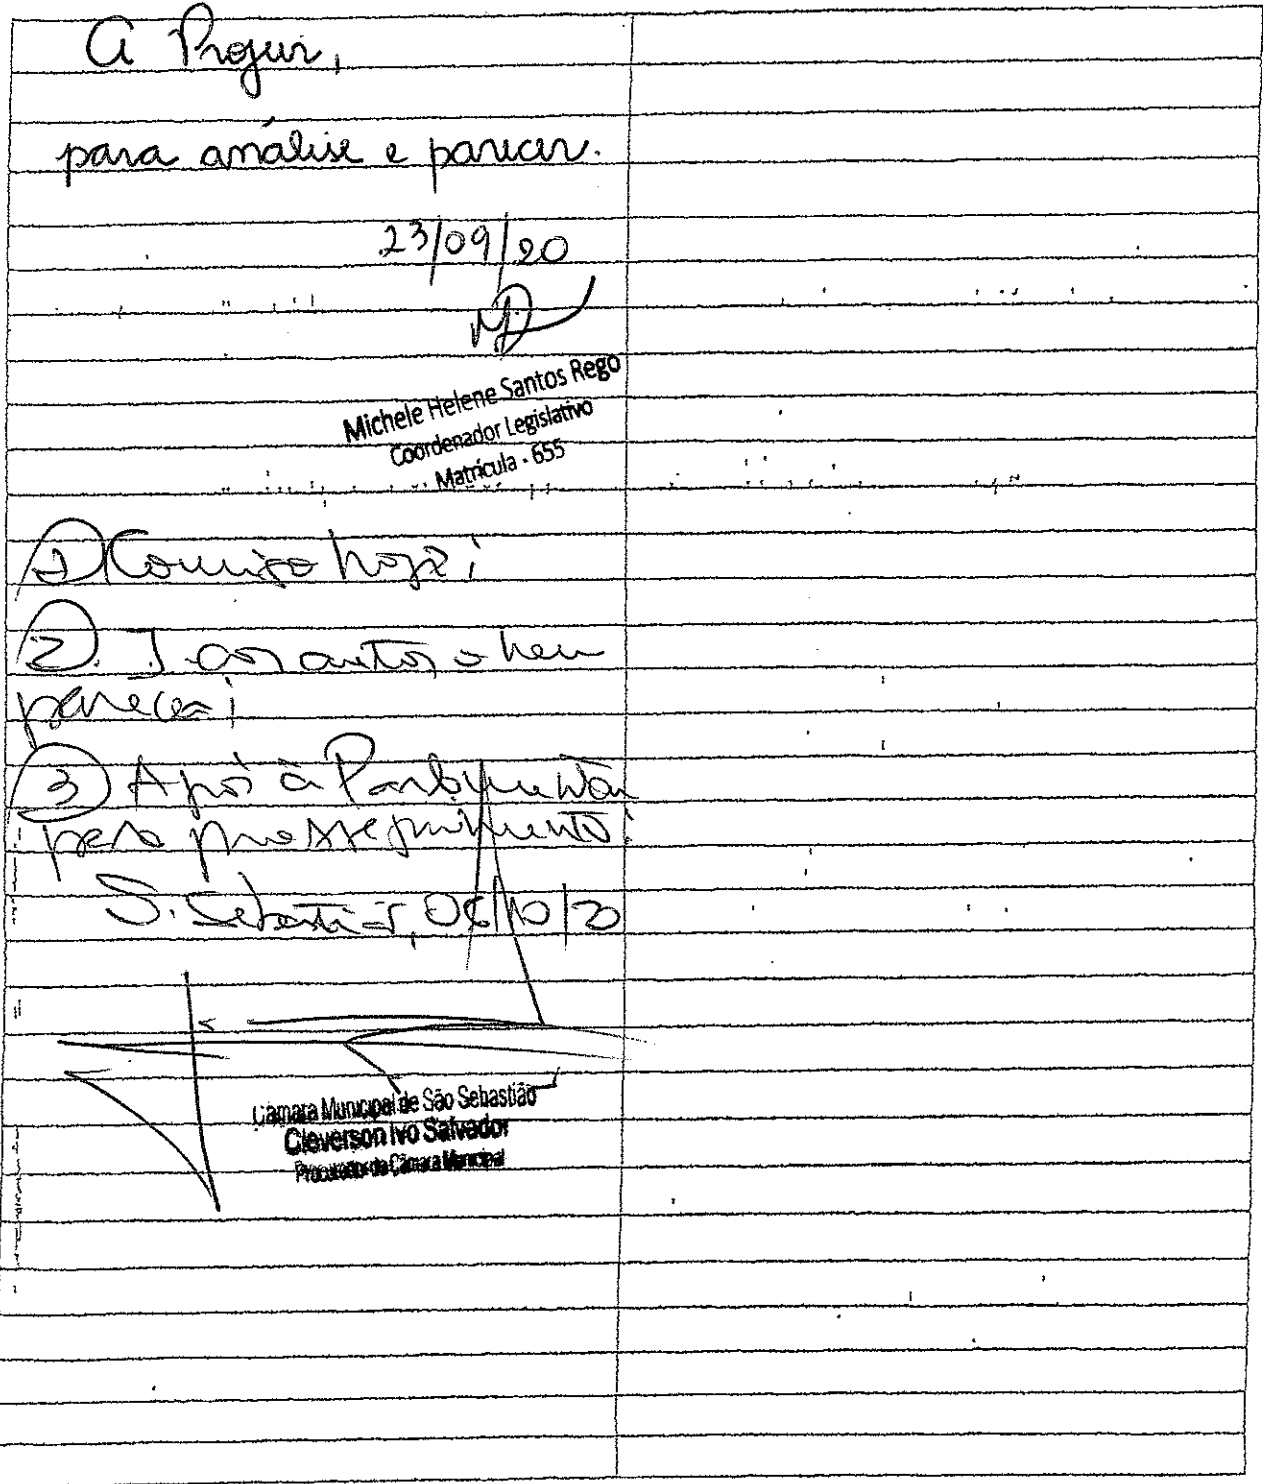 À Projur,
para análise e parecer.
23/09/20
Michele Helene Santos Rego
Coordenador Legislativo
Matrícula - 655
1) Comigo hoje;
2. J. aos autos o meu
parecer;
3) Após à Parlamentar
para prosseguimento.
S. Sebastião, /10/20
Câmara Municipal de São Sebastião
Cleverson Ivo Salvador
Procurador da Câmara Municipal